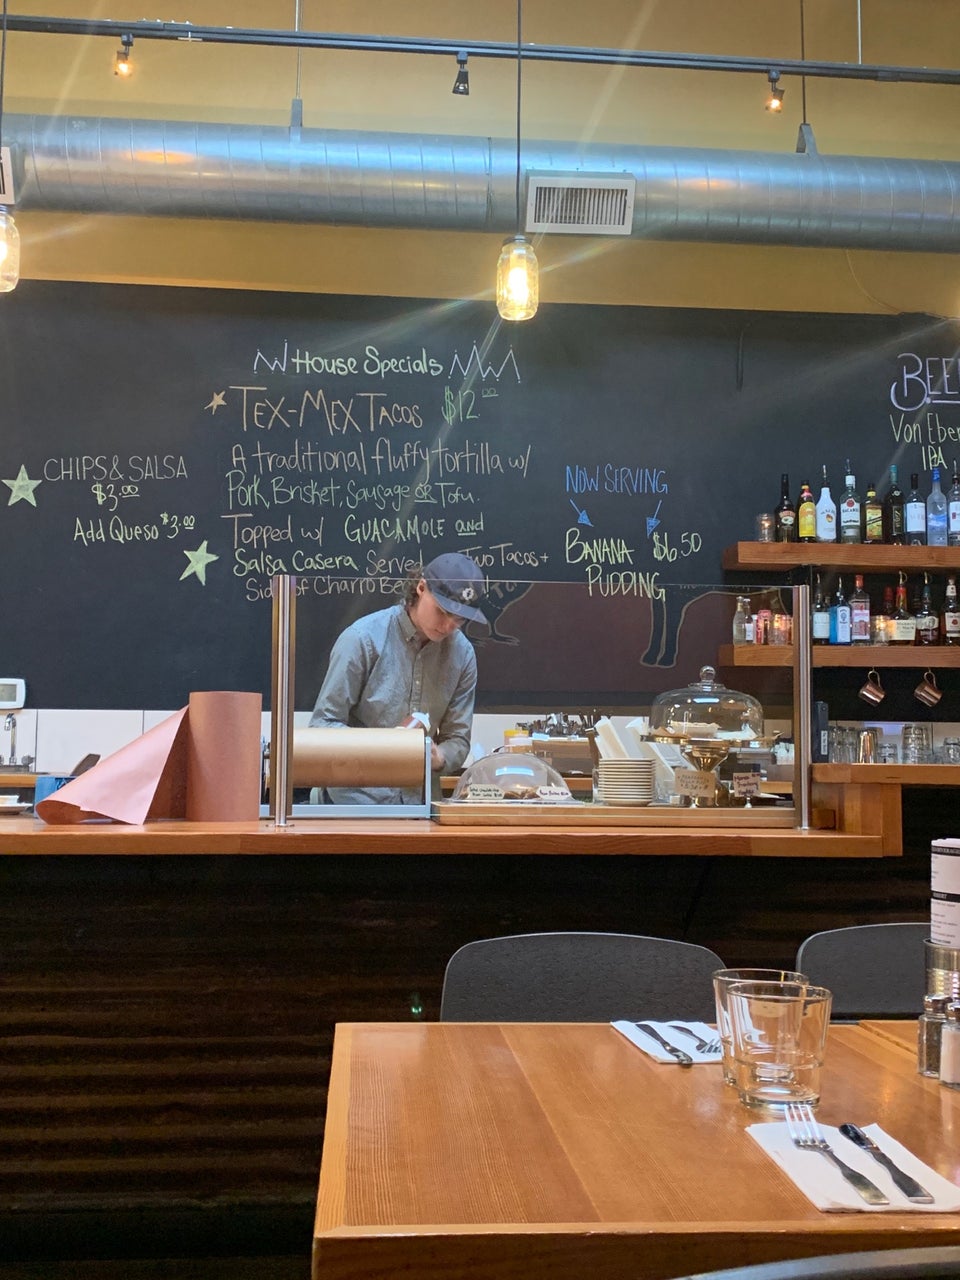 House Specials
TEX-MEX TACOS $12.00
A traditional fluffy tortilla w/
Pork, Brisket, Sausage OR Tofu.
Topped w/ GUACAMOLE and
Salsa Casera Served Two Tacos +
Side of Charro Be
CHIPS & SALSA
$3.00
Add Queso $3.00
NOW SERVING
BANANA $6.50
PUDDING
BEE
Von Eber
IPA